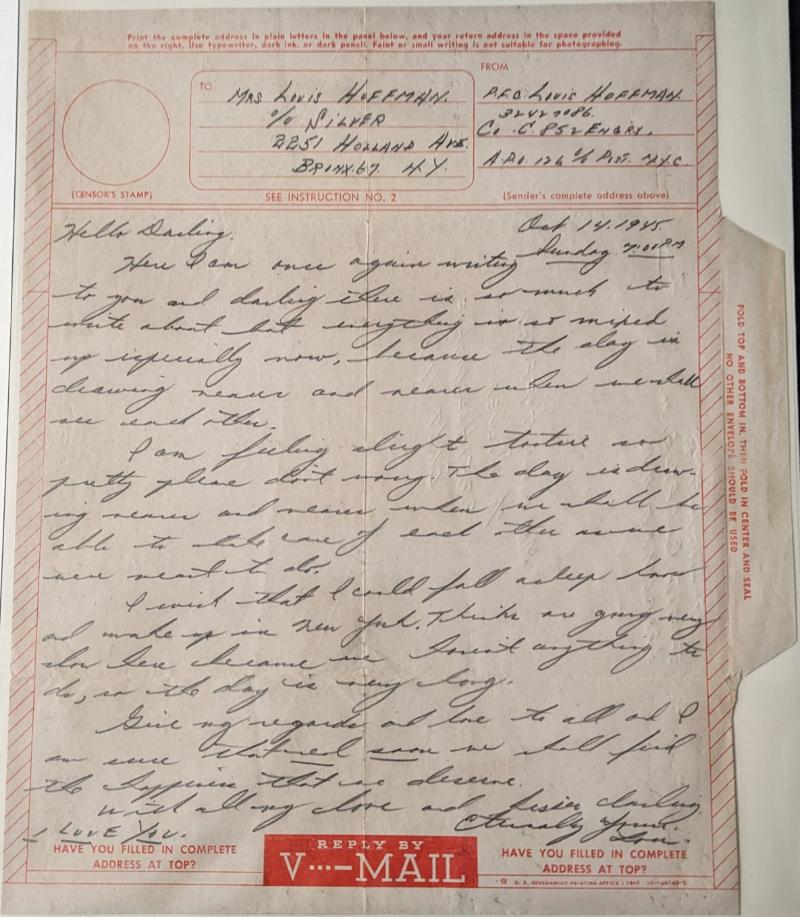 Print the complete address in plain letters in the panel below, and your return address in the space provided
on the right. Use typewriter, dark ink, or dark pencil. Faint or small writing is not suitable for photographing.
TO
MRS LOUIS HOFFMAN.
c/o SILVER
2251 HOLLAND AVE.
BRONX. 67. N.Y.
FROM
P.F.C. LOUIS HOFFMAN.
32427086.
CO. C. 852 ENGRS.
A.P.O. 126 c/o PIST. N.Y.C.
(CENSOR'S STAMP)
SEE INSTRUCTION NO. 2
(Sender's complete address above)
Oct 14. 1945.
Sunday 7:00 PM
Hello Darling.
Here I am once again writing
to you and darling there is so much to
write about but everything is so mixed
up ispecially now, because the day is
drawing nearer and nearer when we shall
see each other.
I am feeling alright so
please don't worry. The day is draw-
ing nearer and nearer when we shall be
able to take care of each other as we
were meant to do.
I wish that I could fall asleep
and wake up in New York. Thinks are going very
slow here because we haven't anything to
do, so the day is very long.
Give my regards and love to all and I
am sure that real soon we shall find
the happiness that we deserve.
With all my love and kisses darling
Eternally yours.
Lou.
I LOVE YOU.
HAVE YOU FILLED IN COMPLETE
ADDRESS AT TOP?
REPLY BY
V···—MAIL
HAVE YOU FILLED IN COMPLETE
ADDRESS AT TOP?
U. S. GOVERNMENT PRINTING OFFICE
FOLD TOP AND BOTTOM IN, THEN FOLD IN CENTER AND SEAL
NO OTHER ENVELOPE SHOULD BE USED